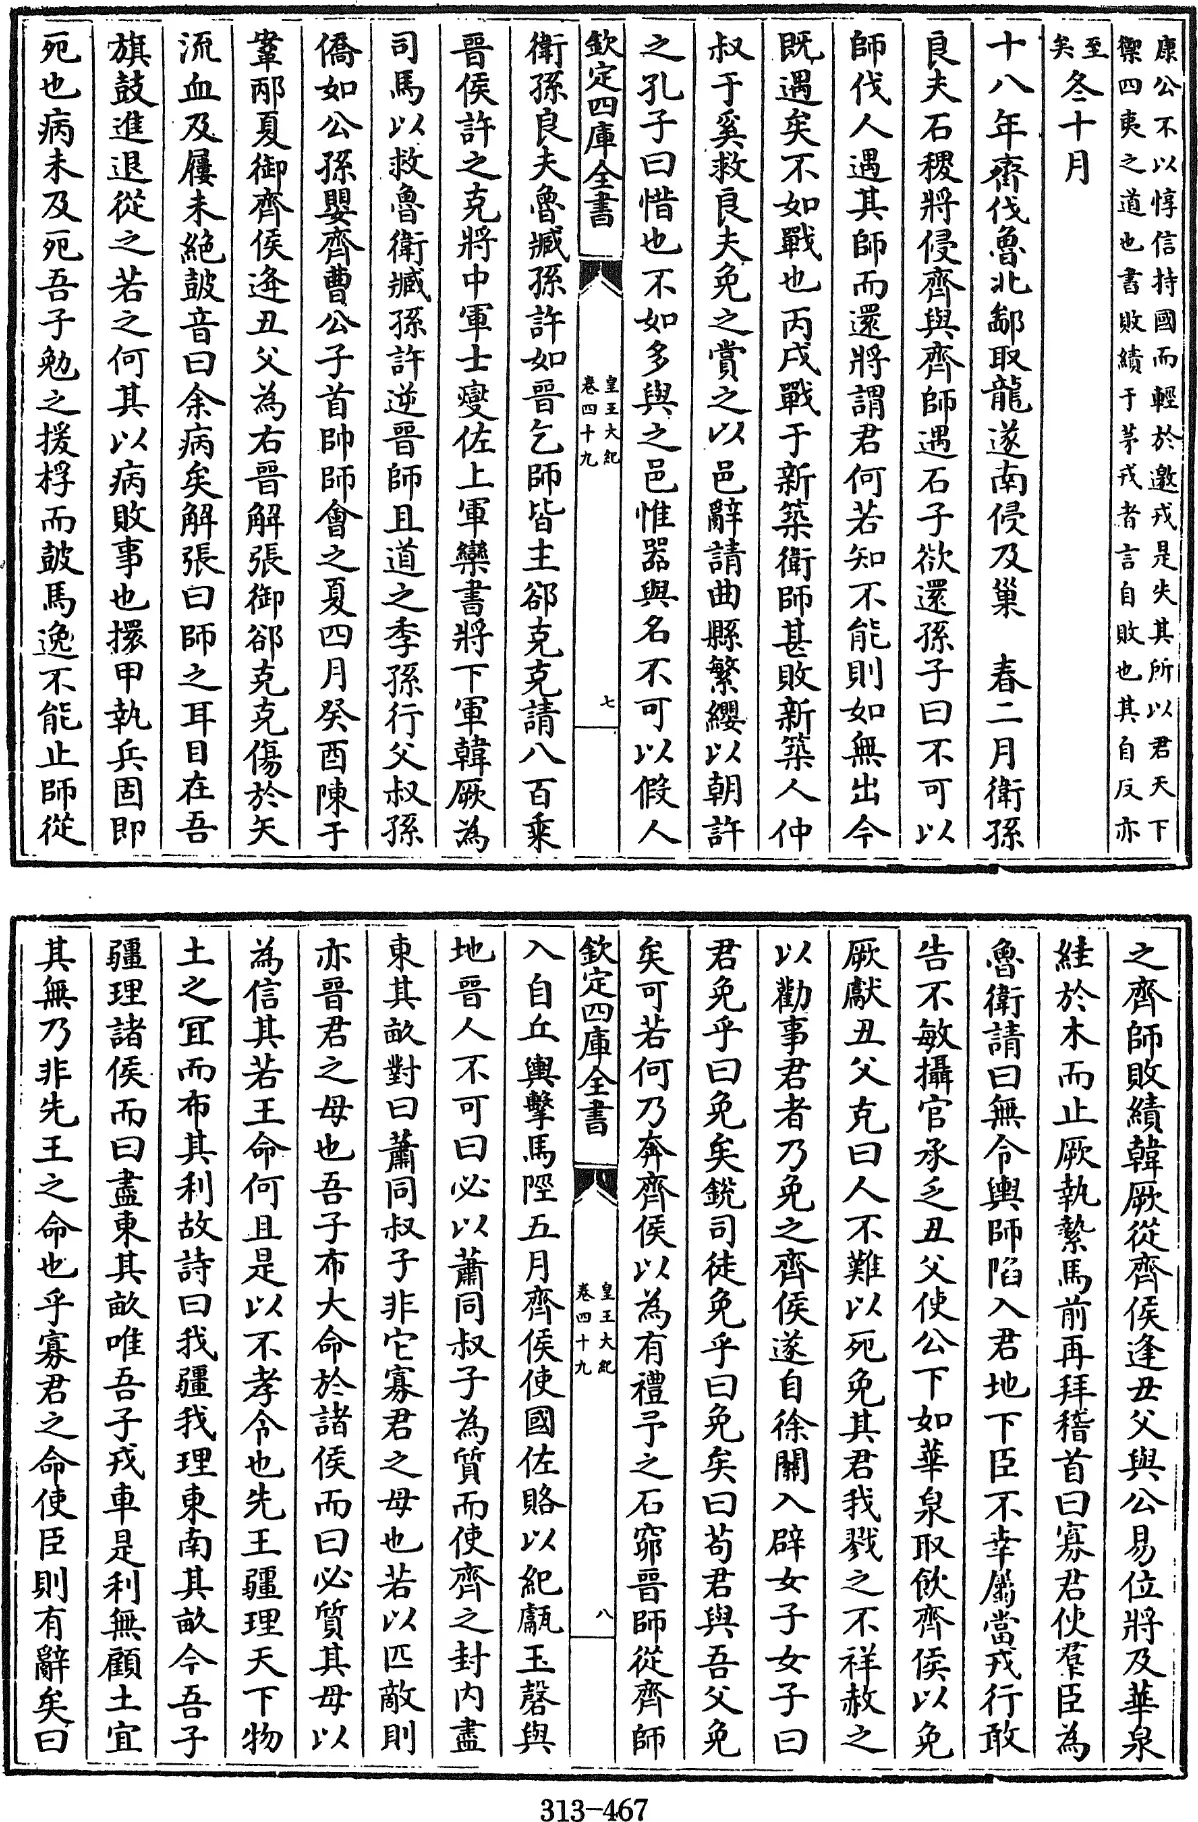 康公不以惇信持國而輕於邀戎是失其所以君天下
禦四夷之道也書敗績于茅戎者言自敗也其自反亦
至矣冬十月
十八年齊伐魯北鄙取龍遂南侵及巢　春二月衛孫
良夫石稷將侵齊與齊師遇石子欲還孫子曰不可以
師伐人遇其師而還將謂君何若知不能則如無出今
既遇矣不如戰也丙戌戰于新築衛師甚敗新築人仲
叔于奚救良夫免之賞之以邑辭請曲縣繁纓以朝許
之孔子曰惜也不如多與之邑惟器與名不可以假人
欽定四庫全書
皇王大紀
卷四十九
七
衛孫良夫魯臧孫許如晉乞師皆主郤克克請八百乘
晉侯許之克將中軍士燮佐上軍欒書將下軍韓厥為
司馬以救魯衛臧孫許逆晉師且道之季孫行父叔孫
僑如公孫嬰齊曹公子首帥師會之夏四月癸酉陳于
鞌邴夏御齊侯逄丑父為右晉解張御郤克克傷於矢
流血及屨未絕鼓音曰余病矣解張曰師之耳目在吾
旗鼓進退從之若之何其以病敗事也擐甲執兵固即
死也病未及死吾子勉之援桴而鼓馬逸不能止師從
之齊師敗績韓厥從齊侯逢丑父與公易位將及華泉
絓於木而止厥執縶馬前再拜稽首曰寡君使羣臣為
魯衛請曰無令輿師陷入君地下臣不幸屬當戎行敢
告不敏攝官承乏丑父使公下如華泉取飲齊侯以免
厥獻丑父克曰人不難以死免其君我戮之不祥赦之
以勸事君者乃免之齊侯遂自徐關入辟女子女子曰
君免乎曰免矣銳司徒免乎曰免矣曰苟君與吾父免
矣可若何乃奔齊侯以為有禮予之石窌晉師從齊師
欽定四庫全書
皇王大紀
卷四十九
八
入自丘輿擊馬陘五月齊侯使國佐賂以紀甗玉磬與
地晉人不可曰必以蕭同叔子為質而使齊之封内盡
東其畝對曰蕭同叔子非它寡君之母也若以匹敵則
亦晉君之母也吾子布大命於諸侯而曰必質其母以
為信其若王命何且是以不孝令也先王疆理天下物
土之宜而布其利故詩曰我疆我理東南其畝今吾子
疆理諸侯而曰盡東其畝唯吾子戎車是利無顧土宜
其無乃非先王之命也乎寡君之命使臣則有辭矣曰
313-467